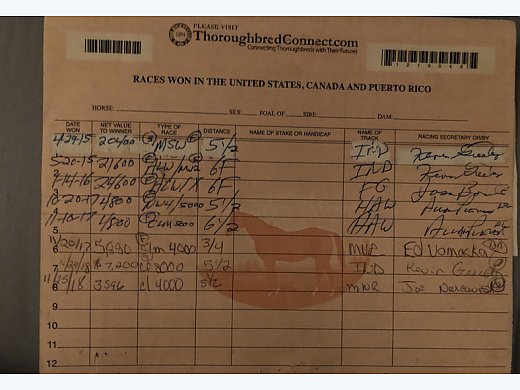 PLEASE VISIT
ThoroughbredConnect.com
Connecting Thoroughbreds with Their Futures
RACES WON IN THE UNITED STATES, CANADA AND PUERTO RICO
HORSE: SEX: FOAL OF: SIRE: DAM:
DATE WON NET VALUE TO WINNER TYPE OF RACE DISTANCE NAME OF STAKE OR HANDICAP NAME OF TRACK RACING SECRETARY OR/BY
4-29-15 20400 MSW 5 1/2 IND Kevin Greely
5-20-15 21,600 6F IND Kevin Greely
3 1-14-16 24,600 6F FG
4 10-20-17 4800 NW4/5000 5 1/2 HAW
11-10-17 4800 Clm 5000 6 1/2 HAW
6 11/20/17 Clm 4000 3/4 Ed Vomacka
7 4/24/18 $7,200 cl 8000 5 1/2 IND Kevin Greely
8 11/25/18 3596 cl 4000 5 1/2 MNR Joe
9
10
11
12